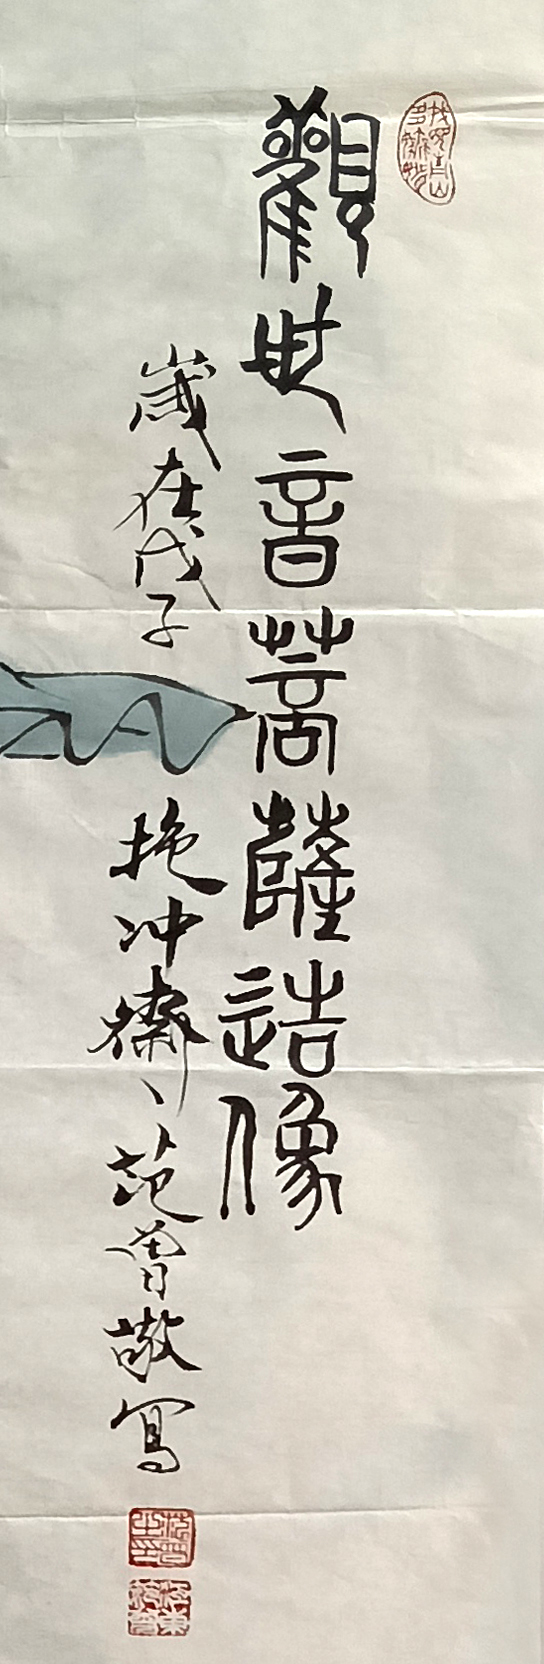 觀世音菩薩造像
歲在戊子
抱冲齋丶范曾敬寫